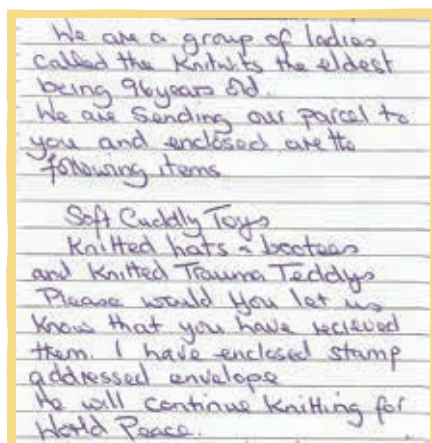 We are a group of ladies
called the Knitwits the eldest
being 96 years old.
We are sending our parcel to
you and enclosed are the
following items
Soft Cuddly Toys
Knitted hats & bootees
and Knitted Trauma Teddys
Please would you let us
know that you have recieved
them. I have enclosed stamp
addressed envelope
We will continue knitting for
World Peace.